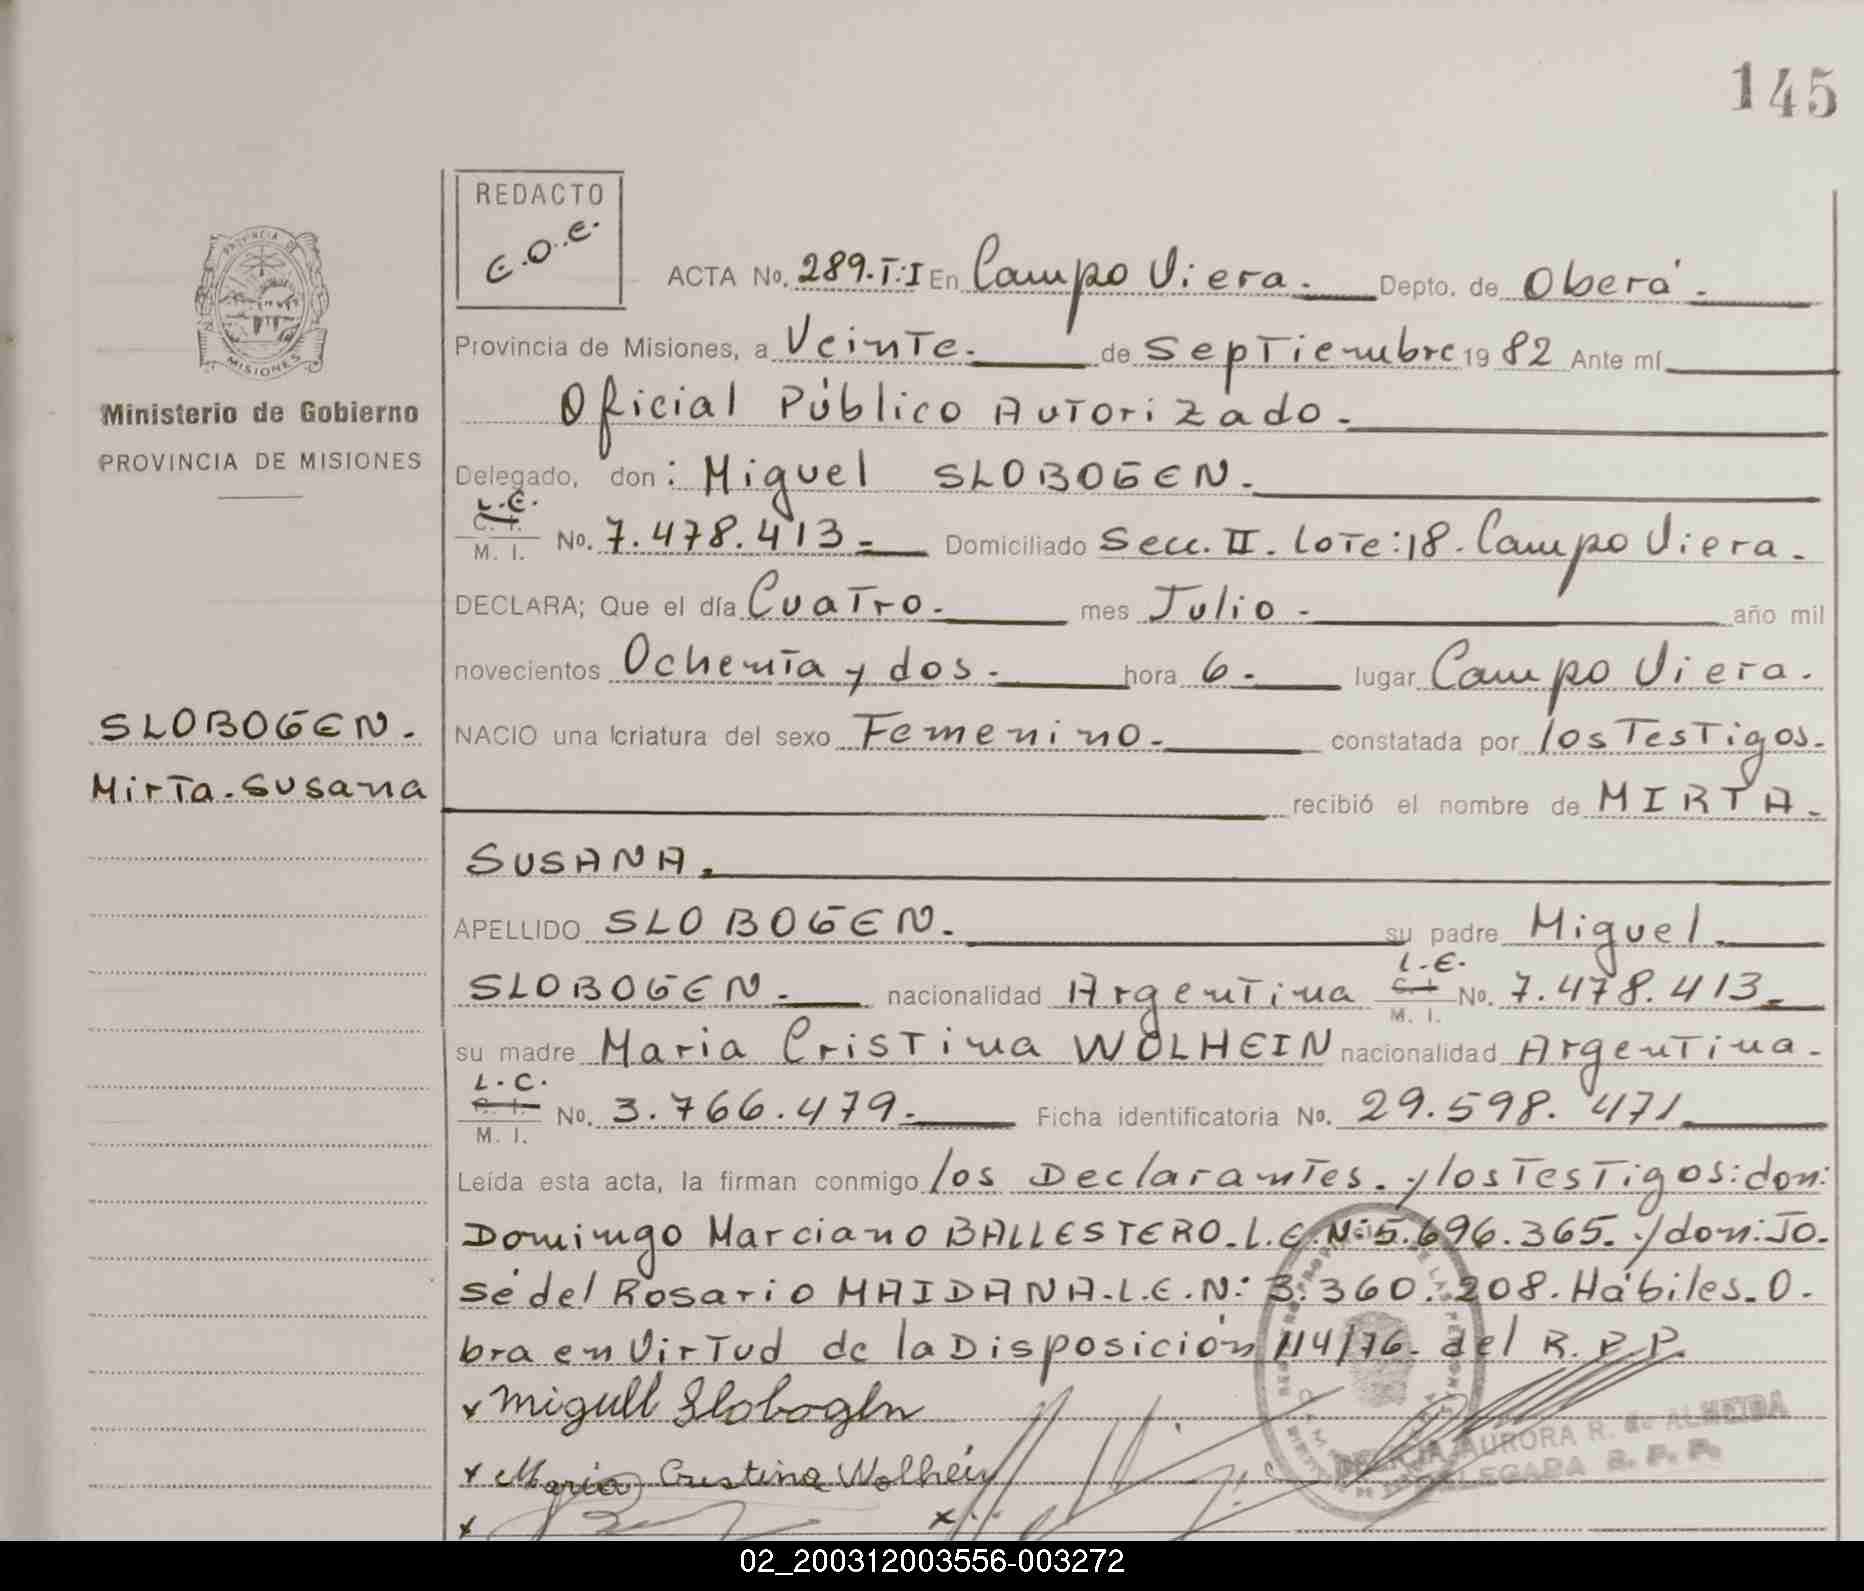 145
REDACTO
E.O.E.
ACTA No. 289.T:I En Campo Viera. Depto. de Oberá.
Provincia de Misiones, a Veinte. de Septiembre 19 82 Ante mí
Oficial Público Autorizado.
Ministerio de Gobierno
PROVINCIA DE MISIONES
Delegado, don: Miguel SLOBOGEN.
L.E.
C. I.
M. I. No. 7.478.413. Domiciliado Secc. II. Lote:18. Campo Viera.
DECLARA; Que el día Cuatro. mes Julio. año mil
novecientos Ochenta y dos. hora 6. lugar Campo Viera.
SLOBOGEN.
Mirta.Susana
NACIO una criatura del sexo Femenino. constatada por los Testigos.
recibió el nombre de MIRTA.
SUSANA.
APELLIDO SLOBOGEN. su padre Miguel.
SLOBOGEN. nacionalidad Argentina L.E. C. I. M. I. No. 7.478.413.
su madre Maria Cristina WOLHEIN nacionalidad Argentina.
L.C.
C. I.
M. I. No. 3.766.479. Ficha identificatoria No. 29.598.471
Leída esta acta, la firman conmigo los Declarantes. y los Testigos: don:
Domingo Marciano BALLESTERO.L.E.N:5.696.365. y don: Jo.
sé del Rosario MAIDANA.L.E.N: 3.360.208. Hábiles. O.
bra en Virtud de la Disposición 114/76. del R.P.P.
x Miguel Slobogen
x Maria Cristina Wolhein
AURORA R. de ALMEIDA
DELEGADA R. P. P.
02_200312003556-003272